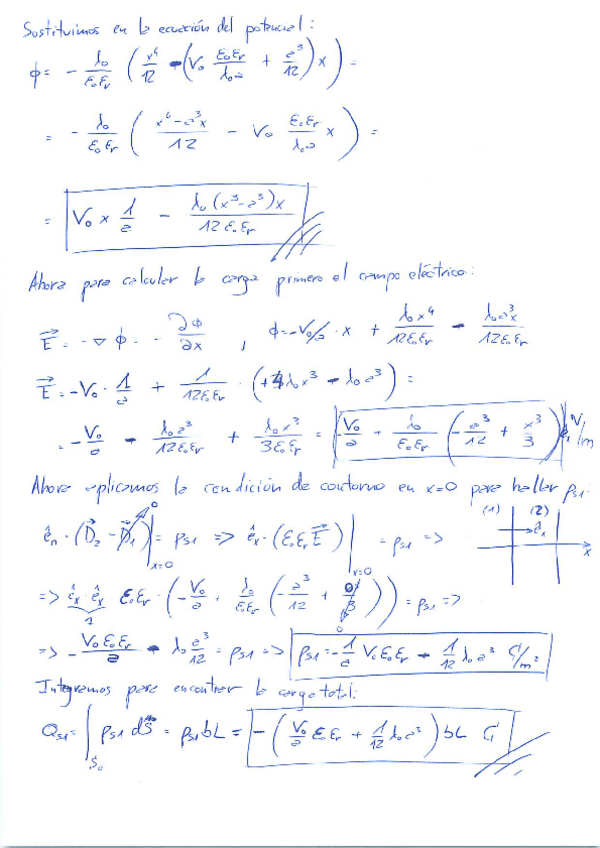 Sustituimos en la ecuación del potencial:
ϕ = - λ₀/(ε₀εᵣ) (x⁴/12 - (V₀ ε₀εᵣ/(λ₀a) + a³/12) x) =
= - λ₀/(ε₀εᵣ) ( (x⁴-a³x)/12 - V₀ ε₀εᵣ/(λ₀a) x ) =
= V₀ x 1/a - λ₀(x³-a³)x/(12ε₀εᵣ)
Ahora para calcular la carga primero el campo eléctrico:
E⃗ = -∇ϕ = - ∂ϕ/∂x , ϕ=-V₀/a · x + λ₀x⁴/(12ε₀εᵣ) - λ₀a³x/(12ε₀εᵣ)
E⃗ = -V₀ · 1/a + 1/(12ε₀εᵣ) · (+4λ₀x³ - λ₀a³) =
= -V₀/a - λ₀a³/(12ε₀εᵣ) + λ₀x³/(3ε₀εᵣ) = -V₀/a + λ₀/(ε₀εᵣ) (-a³/12 + x³/3) êₓ V/m
Ahora aplicamos la condición de contorno en x=0 para hallar ρs1:
(1) (2)
êₙ · (D⃗₂ - D⃗₁)|x=0 = ρs1 => êₓ · (ε₀εᵣE⃗)|x=0 = ρs1 =>
êₓ
x
=> êₓ · êₓ ε₀εᵣ · (-V₀/a + λ₀/(ε₀εᵣ) (-a³/12 + 0/3)) = ρs1 =>
1
=> - V₀ε₀εᵣ/a - λ₀ a³/12 = ρs1 => ρs1 = -1/a V₀ε₀εᵣ - 1/12 λ₀a³ C/m²
Integramos para encontrar la carga total:
Qs1 = ∫S₀ ρs1 dS = ρs1bL = -(V₀/a ε₀εᵣ + 1/12 λ₀a³) bL C